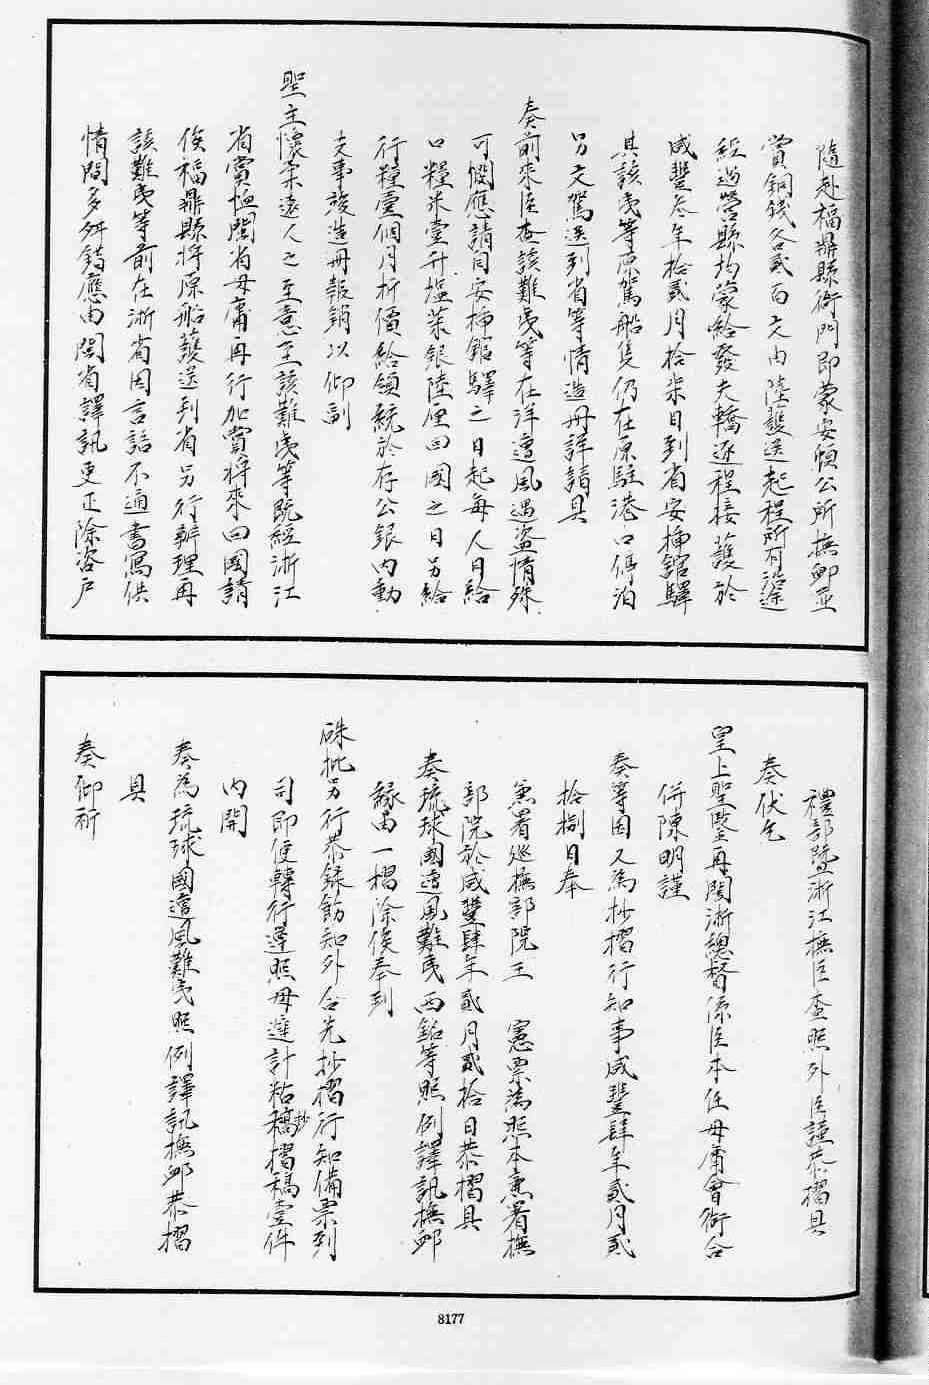 隨赴福鼎縣衙門即蒙安頓公所撫卹並
賞銅錢各貳百文由陸護送起程所有沿途
經過營縣均蒙給發夫轎逐程接護於
咸豐叁年拾貳月拾柒日到省安揷館驛
其該難夷等原駕船隻仍在原駐港口停泊
另文駕送到省等情造册詳請具
奏前來臣查該難夷等在洋遭風遇盜情殊
可憫應請自安揷館驛之日起每人日給
口糧米壹升塩菜銀陸厘回國之日另給
行糧壹個月折價給領統於存公銀內動
支事竣造册報銷以仰副
聖主懷柔遠人之至意至該難夷等既經浙江
省賞恤閩省毋庸再行加賞將來回國請
俟福鼎縣將原船護送到省另行辦理再
該難夷等前在浙省因言語不通書寫供
情間多舛錯應由閩省譯訊更正除咨戶
禮部暨浙江撫臣查照外臣謹恭摺具
奏伏乞
皇上聖鑒再閩浙總督係臣本任毋庸會銜合
併陳明謹
奏等因又為抄摺行知事咸豐肆年貳月貳
拾捌日奉
兼署巡撫部院王　憲票為照本兼署撫
部院於咸豐肆年貳月貳拾日恭摺具
奏琉球國遭風難夷西銘等照例譯訊撫卹
緣由一摺除俟奉到
硃批另行恭錄飭知外合先抄摺行知備票到
司即便轉行遵照毋違計粘抄摺稿壹件
內開
奏為琉球國遭風難夷照例譯訊撫卹恭摺
具
奏仰祈
8177